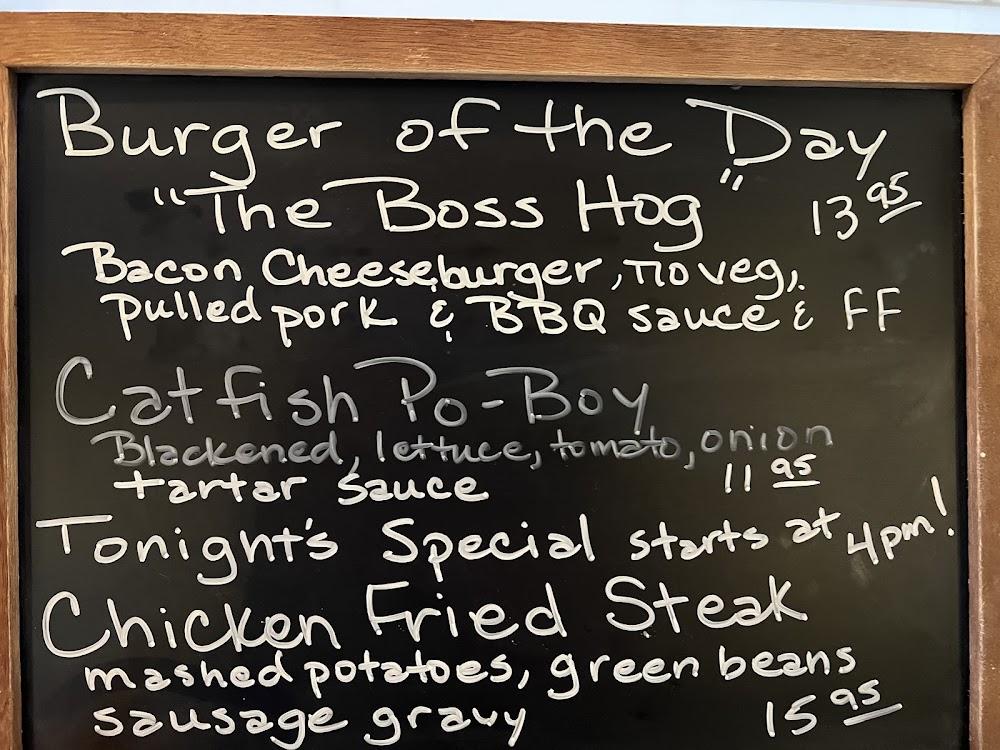 Burger of the Day
"The Boss Hog" 13 95
Bacon Cheeseburger, no veg,
pulled pork & BBQ sauce & FF
Catfish Po-Boy
Blackened, lettuce, tomato, onion
tartar sauce 11 95
Tonight's Special starts at 4pm!
Chicken Fried Steak
mashed potatoes, green beans
sausage gravy 15 95